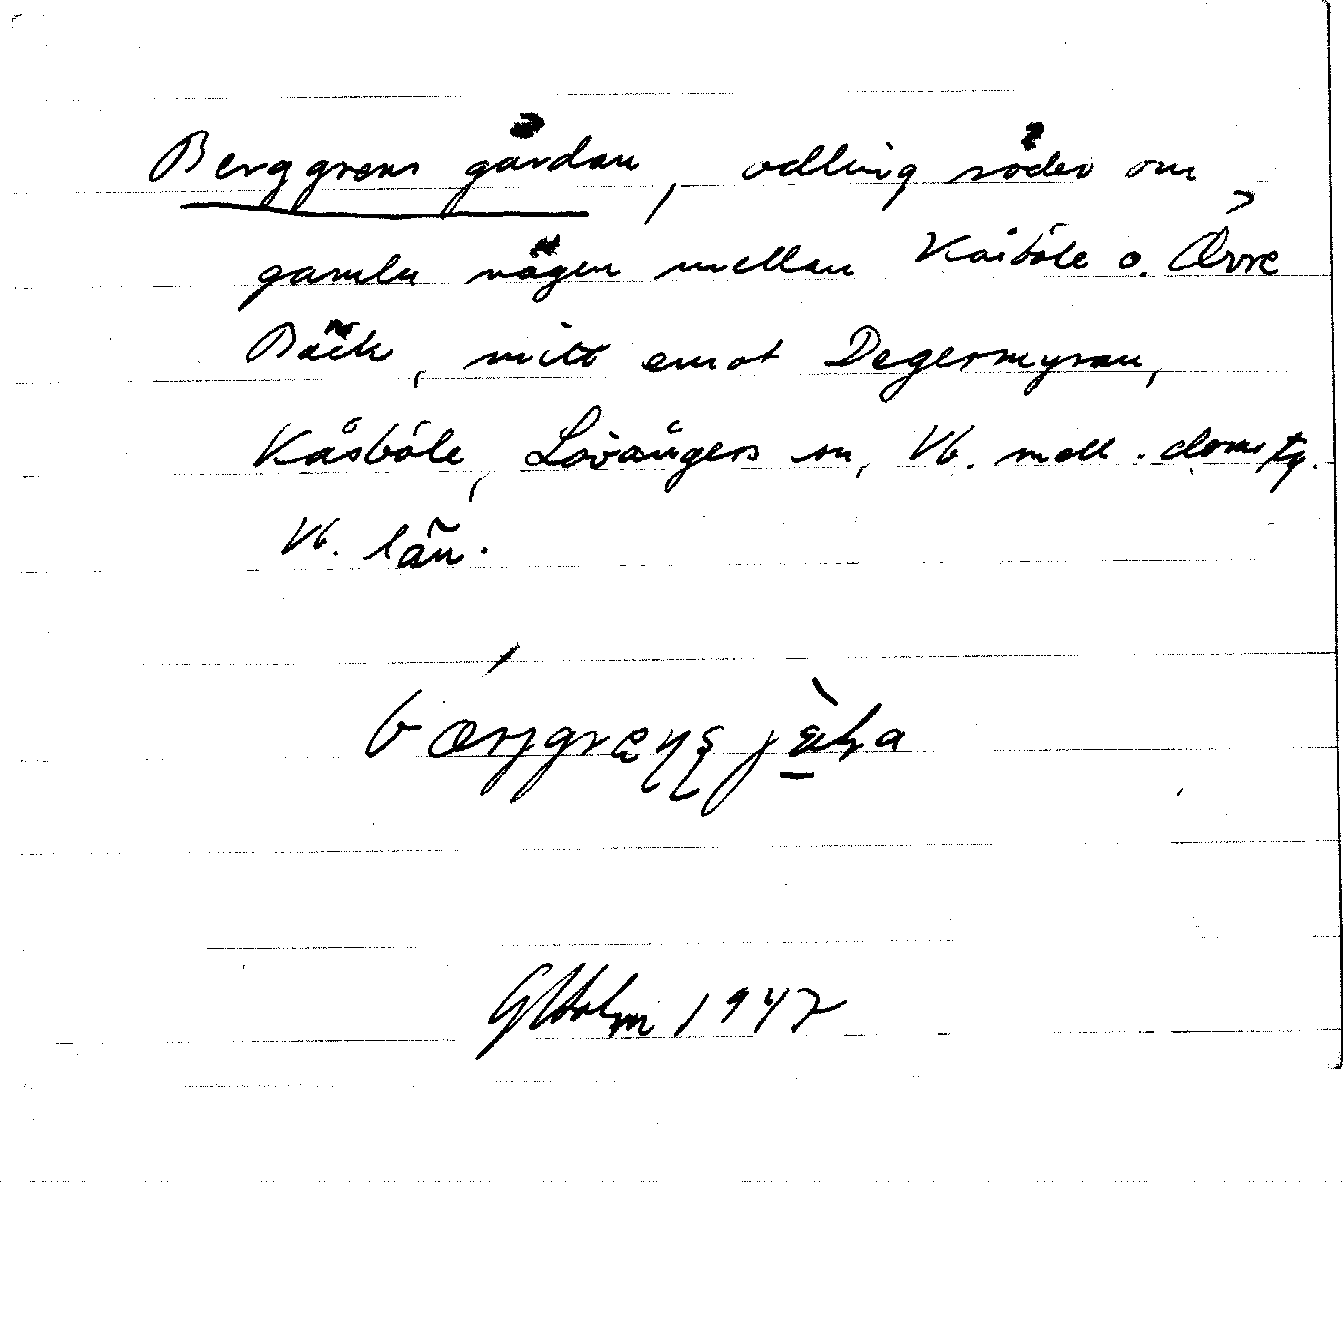 Berggrens gärdan, odling söder om
gamla vägen mellan Kåsböle o. Övre
Bäck, mitt emot Degermyran,
Kåsböle, Lövångers sn, Vb. mell. domsg.
Vb. län.
G Holm 1947